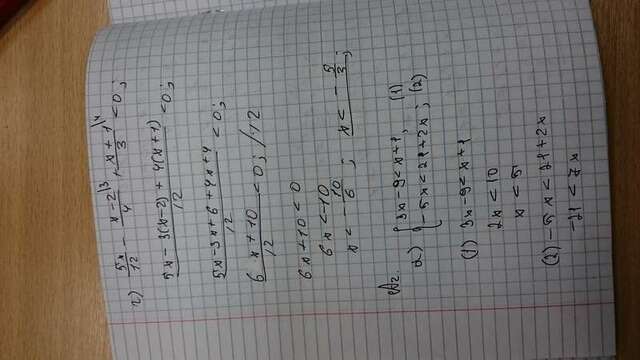 г) 5x/12 - x-2/4 \3 + x+1/3 \4 < 0;
5x - 3(x-2) + 4(x+1)/12 < 0;
5x - 3x + 6 + 4x + 4/12 < 0;
6 x + 10/12 < 0; /·12
6x + 10 < 0
6x < -10
x < - 10/6 ; x < - 5/3 ;
№2.
а) { 3x - 9 < x + 1, (1)
- 5x < 21 + 2x ; (2)
(1) 3x - 9 < x + 1
2x < 10
x < 5
(2) - 5x < 21 + 2x
-21 < 7x